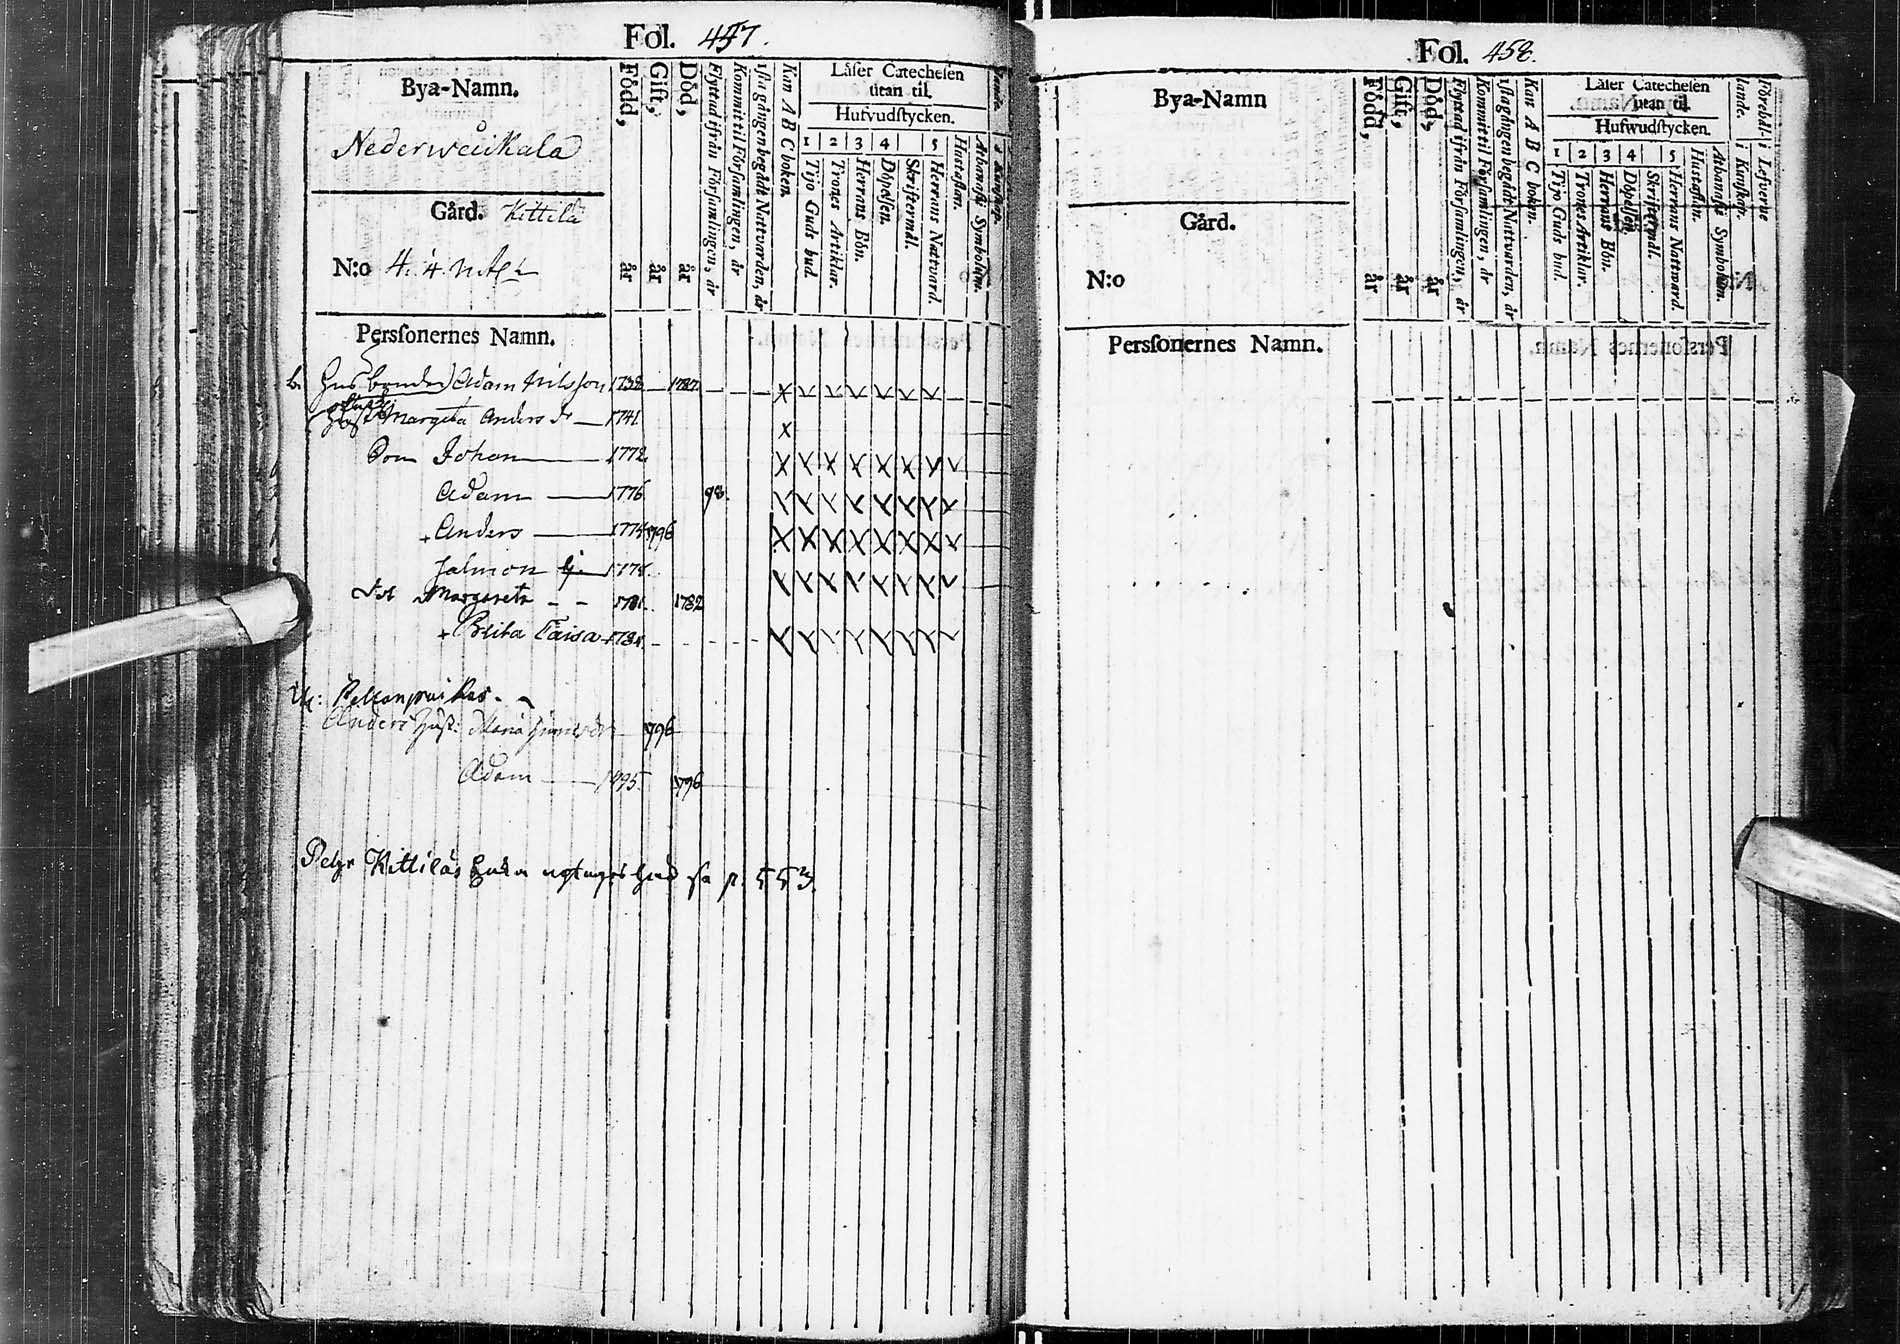 Fol. 457.
Bya-Namn.
Nederweukala
Gård. Kittilä
N:o 4.
Född, år
Gift, år
Död, år
Flyttad ifrån Församlingen, år
Kommit til Församlingen, år
1sta gången begådt Nattvarden, år
Kan A B C boken.
Läser Catechesen
utan til.
Hufvudstycken.
1 2 3 4 5
Tijo Guds bud.
Trones Artiklar.
Herrans Bön.
Döpelsen.
Skriftermål.
Herrans Nattvard.
Hustaflan.
Athanasii Symbolum.
Personernes Namn.
b. Husbonden Adam Nilsson 1738 1787
Margeta Anders dr 1741
Son Johan 1772
Adam 1776 98.
+ Anders 1774 1796
Salmon 1778
Margareta 1781 1782
+ Brita Caisa 1784
Anders Hust: Maria 1796
Adam 1795 1796
Petter Kittiläs p. 553.
Fol. 458.
Bya-Namn
Gård.
N:o
Född, år
Gift, år
Död, år
Flyttad ifrån Församlingen, år
Kommit til Församlingen, år
1sta gången begådt Nattvarden, år
Kan A B C boken.
Läser Catechesen
utan til.
Hufwudstycken.
1 2 3 4 5
Tijo Guds bud.
Trones Artiklar.
Herrans Bön.
Döpelsen.
Skriftermål.
Herrans Nattvard.
Hustaflan.
Athanasii Symbolum.
Förehåll. i Lefverne
lande. i Kunskap.
Personernes Namn.